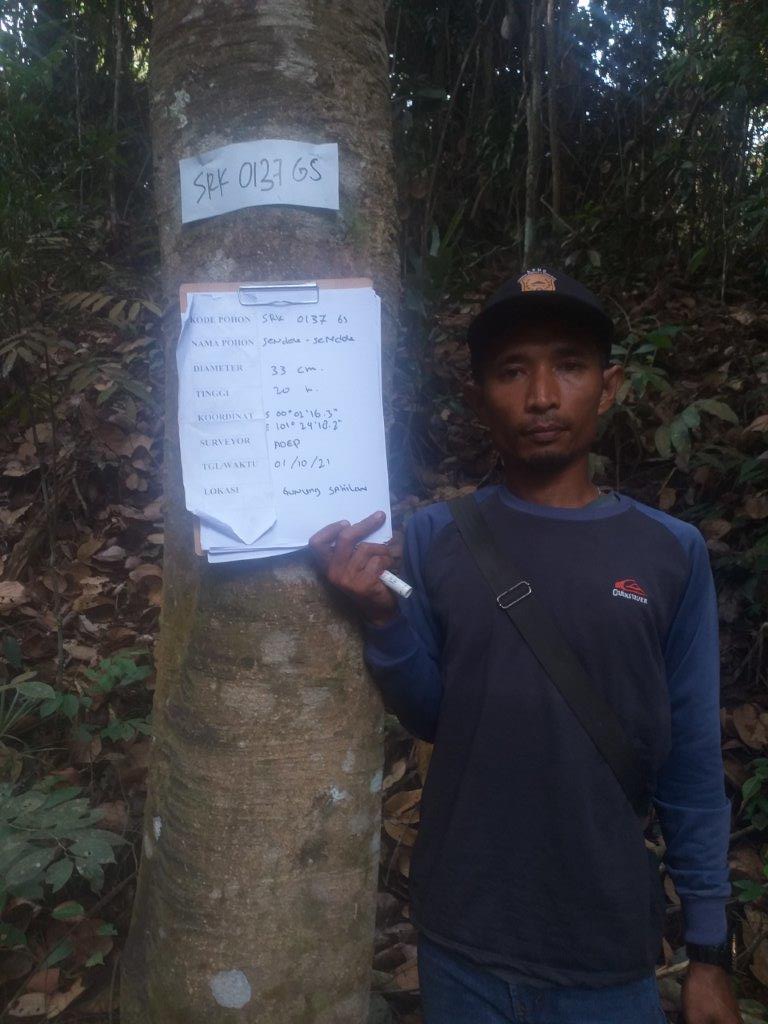 SRK 0137 GS
KODE POHON SRK 0137 GS
NAMA POHON Sendok-sendok
DIAMETER 33 cm.
TINGGI 20 M.
KOORDINAT S 00°02'16.3"
E 101°24'18.2"
SURVEYOR ADEP
TGL/WAKTU 01/10/21
LOKASI Gunung Sahilan
QUIKSILVER